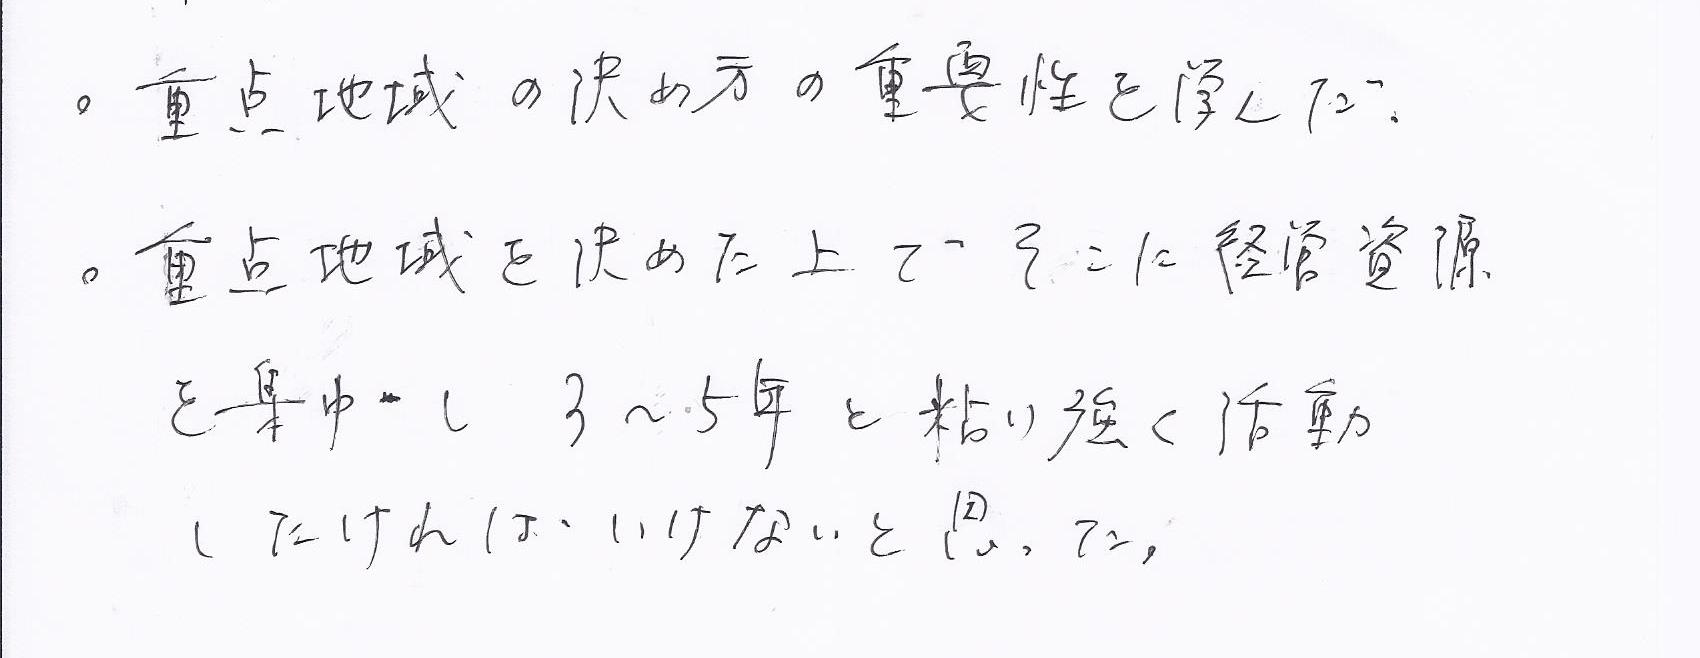 。重点地域の決め方の重要性を学んだ。
。重点地域を決めた上でそこに経営資源
を集中し 3～5年と粘り強く活動
したければいけないと思った。